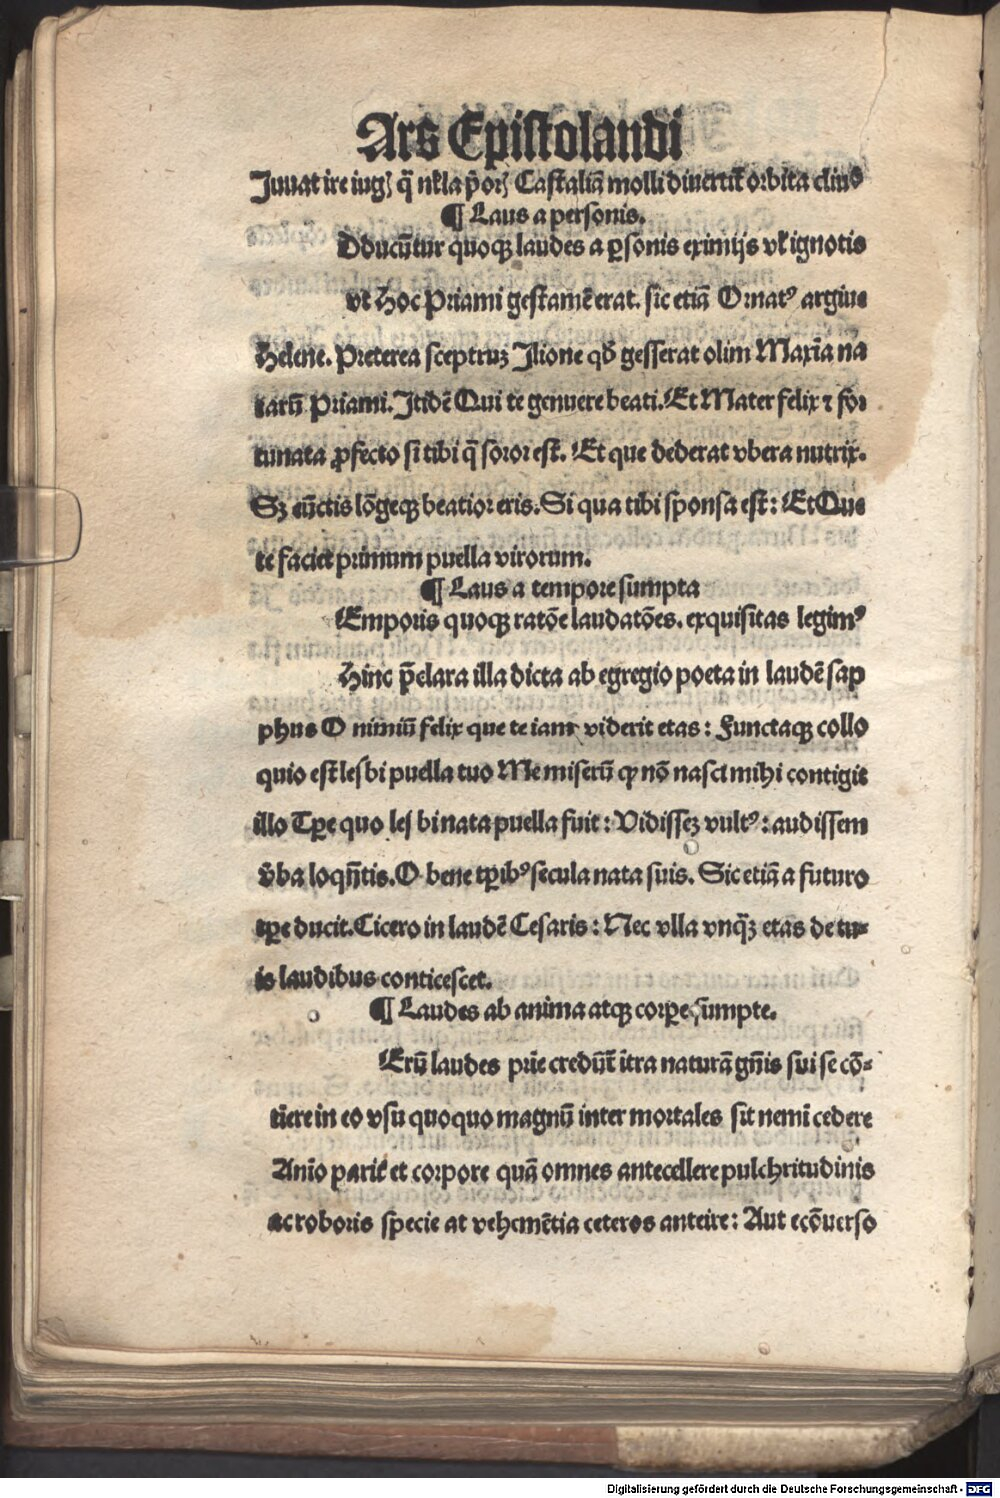 Ars Epistolandi
Juuat ire iugꝭ q̃ nľla p̃oꝝ Castaliã molli diuertiť orbita cliuo
¶ Laus a personis.
Dducũtur quoqꝫ laudes a ꝑsonis eximijs vľ ignotis
vt Hoc Priami gestamẽ erat. sic etiã Ornatꝰ argiue
Helene. Preterea sceptruꝫ Jlione qď gesserat olim Maxĩa na
tarũ Priami. Jtidẽ Qui te genuere beati. Et Mater felix ⁊ for
tunata ꝓfecto si tibi q̃ soror est. Et que dederat vbera nutrix.
Sꝫ cũctis lõgeqꝫ beatior eris. Si qua tibi sponsa est: Et Que
te faciet primum puella virorum.
¶ Laus a tempore sumpta
Emporis quoqꝫ ratõe laudatões. exquisitas legimꝰ
Hinc p̃clara illa dicta ab egregio poeta in laudẽ sap
phus O nimiũ felix que te iam viderit etas: Functaqꝫ collo
quio est lesbi puella tuo Me miserũ ꝙ nõ nasci mihi contigit
illo Tꝑe quo lesbi nata puella fuit: Vidisseꝫ vultꝰ: audissem
v̾ba loqñtis. O bene tꝑibꝰ secula nata suis. Sic etiã a futuro
tꝑe ducit. Cicero in laudẽ Cesaris: Nec vlla vnq̃ꝫ etas de tu⸗
is laudibus conticescet.
¶ Laudes ab anima atqꝫ corꝑe sumpte.
Erũ laudes p̃rie credũť itra naturã gñis sui se cõ⸗
tiere in eo vsu quoquo magnũ inter mortales sit nemĩ cedere
Anĩo pariť et corpore quã omnes antecellere pulchritudinis
ac roboris specie at vehemẽtia ceteros anteire: Aut ecõuerso
Digitalisierung gefördert durch die Deutsche Forschungsgemeinschaft - DFG